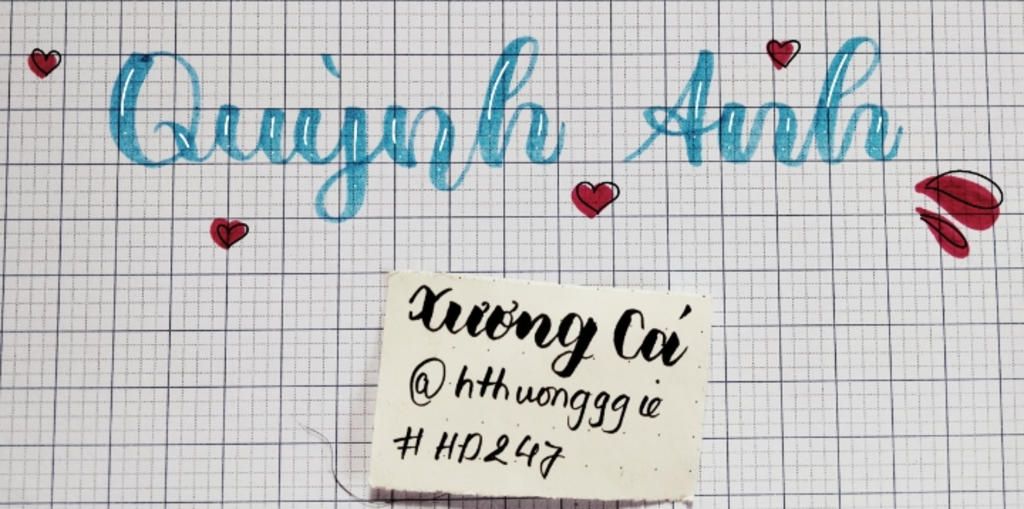 Quỳnh Anh
Xương Cá
@hthuonggg ie
#HD247